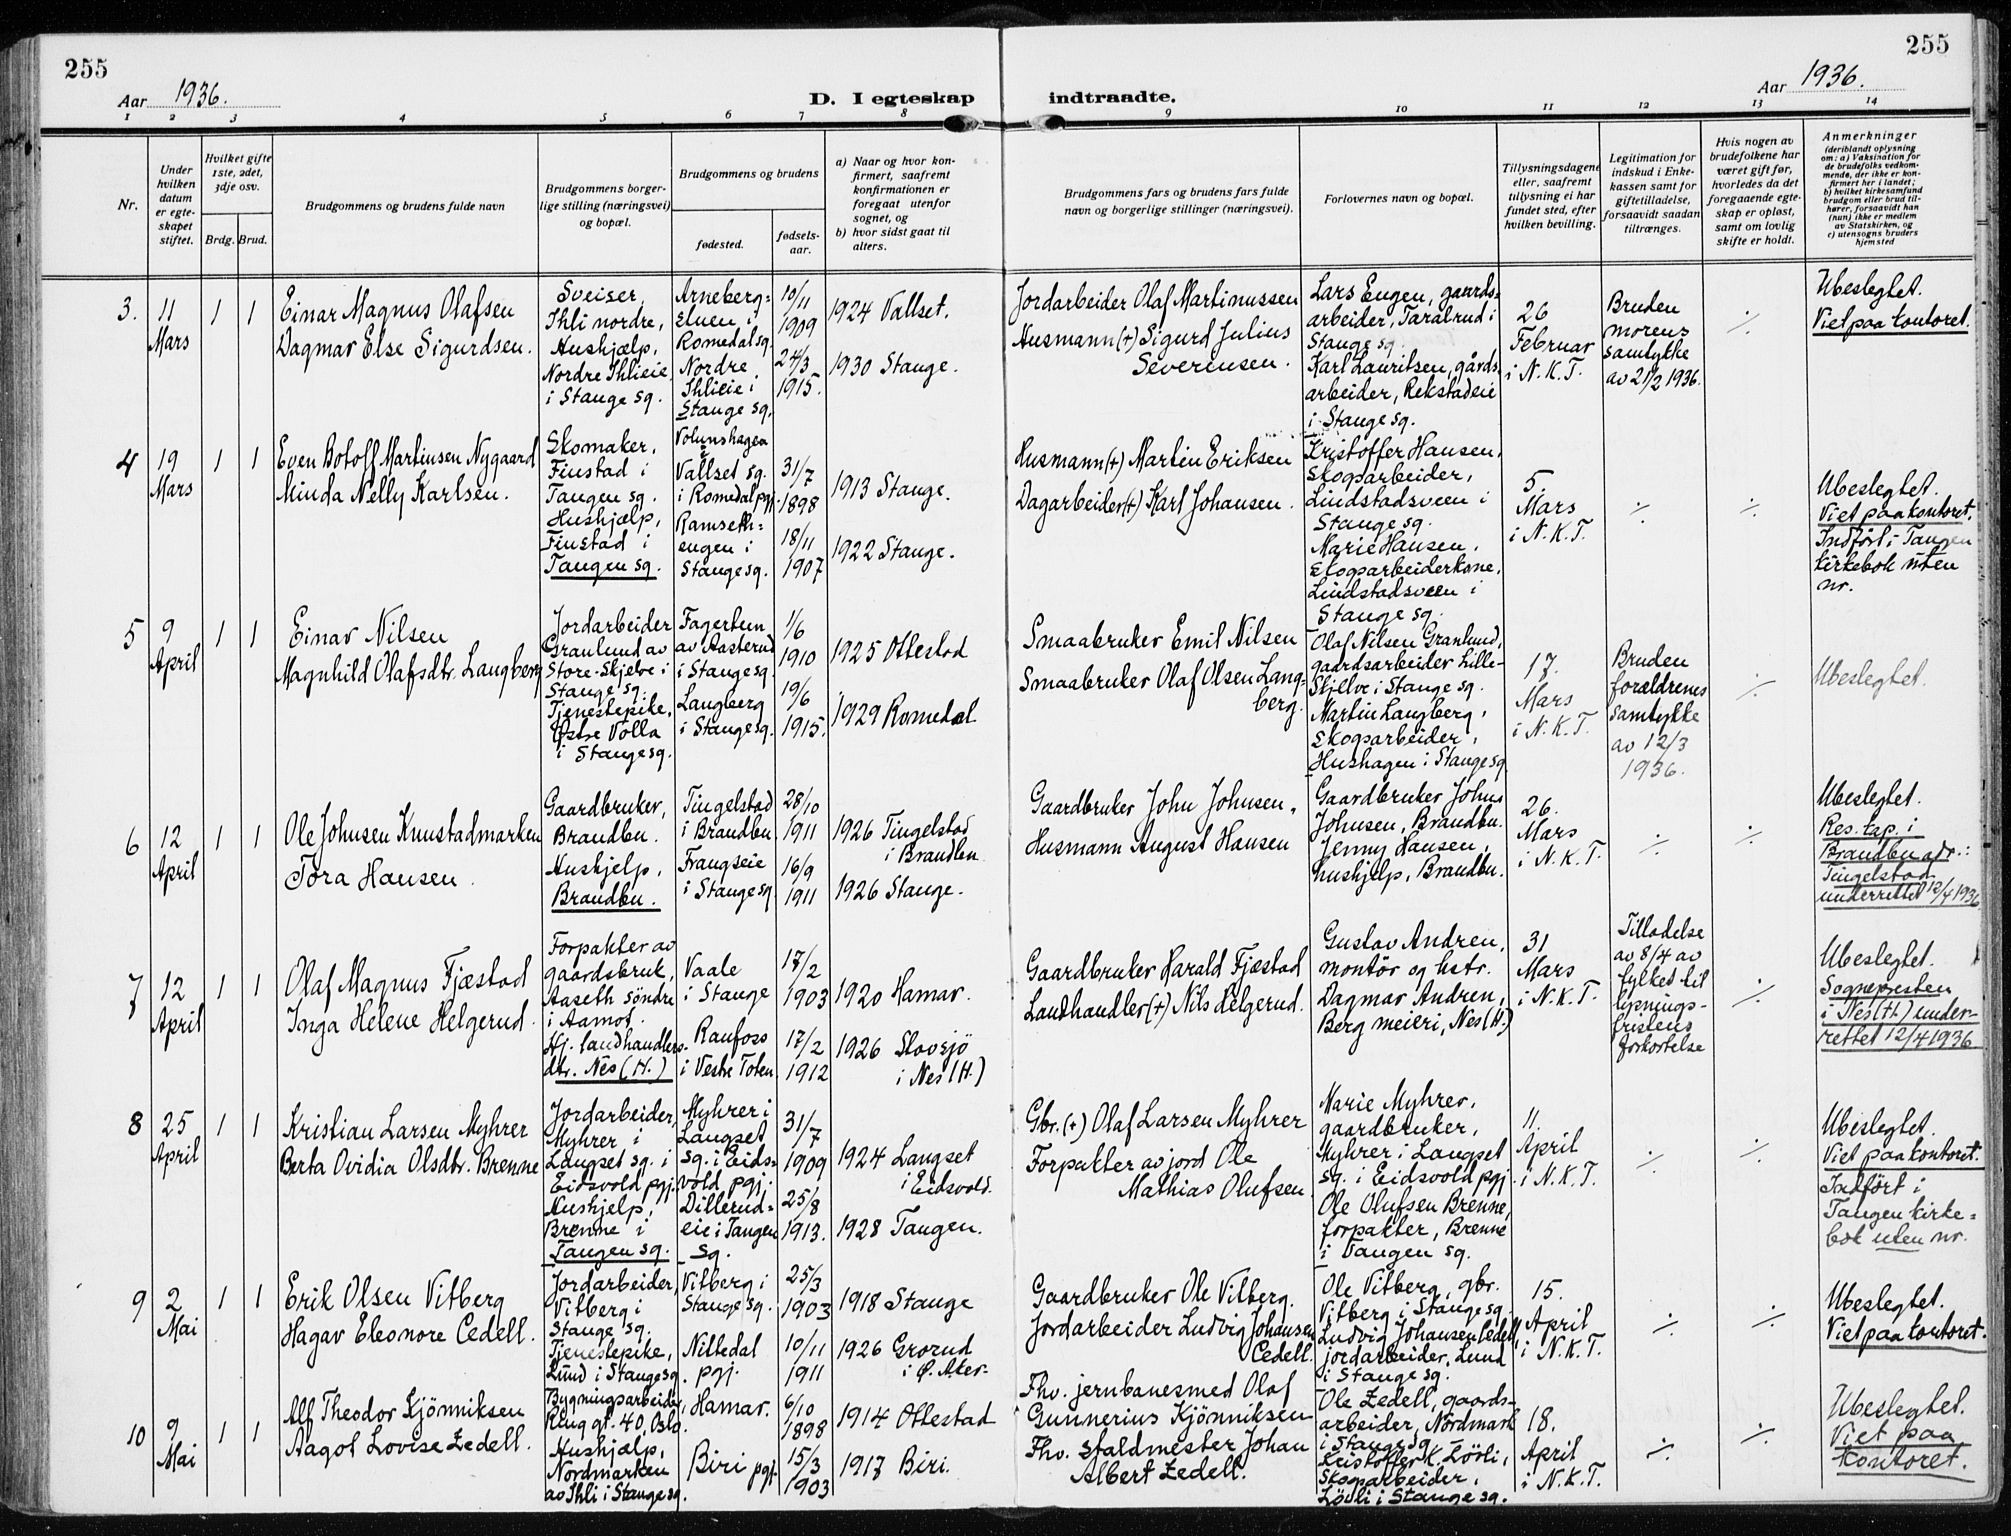 255
255
Aar 1936.
D. I egteskap
indtraadte.
Aar 1936.
1 2 3 4 5 6 7 8 9 10 11 12 13 14
Nr.
Under hvilken datum er egteskapet stiftet.
Hvilket gifte 1ste, 2det, 3dje osv.
Brdg. Brud.
Brudgommens og brudens fulde navn
Brudgommens borgerlige stilling (næringsvei) og bopæl.
Brudgommens og brudens
fødested.
fødselsaar.
a) Naar og hvor konfirmert, saafremt konfirmationen er foregaat utenfor sognet, og
b) hvor sidst gaat til alters.
Brudgommens fars og brudens fars fulde navn og borgerlige stillinger (næringsvei).
Forlovernes navn og bopæl.
Tillysningsdagene eller, saafremt tillysning ei har fundet sted, efter hvilken bevilling.
Legitimation for indskud i Enkekassen samt for giftetilladelse, forsaavidt saadan tiltrænges.
Hvis nogen av brudefolkene har været gift før, hvorledes da det foregaaende egteskap er opløst, samt om lovlig skifte er holdt.
Anmerkninger
(deriblandt oplysning om: a) Vaksination for de brudefolks vedkommende, der ikke er konfirmert her i landet; b) hvilket kirkesamfund brudgom eller brud tilhører, forsaavidt han (hun) ikke er medlem av Statskirken, og c) utensogns bruders hjemsted
3.
11 Mars
1 1
Einar Magnus Olafsen
Dagmar Else Sigurdsen.
Sveiser,
Ihli nordre,
Hushjælp,
Nordre Ihlieie
i Stange sg.
Arneberg=
eiuen i
Romedal sg.
Nordre
Ihlieie i
Stange sg.
10/11
1909
24/3
1915.
1924 Vallset.
1930 Stange.
Jordarbeider Olaf Martinussen
Husmann (+) Sigurd Julius
Severinsen.
Lars Engen, gaards=
arbeider, Taralrud i
Stange sg.
Karl Lauritsen, gårds=
arbeider, Rekstadeie
i Stange sg.
26
Februar
i N.K.T.
Bruden
morens
samtykke
av 21/2 1936.
⁒
Ubeslegtet.
Viet paa kontoret.
4
19 Mars
1 1
Even Botolf Martinsen Nygaard
Minda Nelly Karlsen.
Skomaker,
Finstad i
Tangen sg.
Hushjælp,
Finstad i
Tangen sg.
Volunshagen
i
Vallset sg.
i Romedal pgj.
Ramseth=
engen i
Stange sg.
31/7
1898
18/11
1907
1913 Stange.
1922 Stange.
Husmann (+) Martin Eriksen
Dagarbeider (+) Karl Johansen.
Kristoffer Hansen,
Skogsarbeider,
Lindstadsveen i
Stange sg.
Marie Hansen,
Skogsarbeiderkone,
Lindstadsveen i
Stange sg.
5.
Mars
i N.K.T.
⁒
⁒
Ubeslegtet.
Viet paa kontoret.
Indført i Tangen
kirkebok uten
nr.
5
9 April
1 1
Einar Nilsen
Magnhild Olafsdtr. Langberg
Jordarbeider
Granlund av
Store-Skjelve i
Stange sg.
Tjenestepike,
Østre Volla
i Stange sg.
Fagertun
av Aasterud
i Stange sg.
Langberg
i Stange sg.
1/6
1910
19/6
1915.
1925 Ottestad
1929 Romedal
Smaabruker Emil Nilsen
Smaabruker Olaf Olsen Lang=
berg.
Olaf Nilsen Granlund,
gaardsarbeider Lille-
Skjelve i Stange sg.
Martin Langberg,
Skogsarbeider,
Hushagen i Stange sg
17.
Mars
i N.K.T.
Bruden
forældrenes
samtykke
av 12/3
1936.
⁒
Ubeslegtet.
6
12 April
1 1
Ole Johnsen Knustadmarken
Tora Hansen.
Gaardbruker,
Brandbu.
Hushjelp,
Brandbu.
Tingelstad
i Brandbu
Frangseie
i Stange sg.
28/10
1911
16/9
1911
1926 Tingelstad
i Brandbu
1926 Stange.
Gaardbruker John Johnsen,
Husmann August Hansen
Gaardbruker Johns
Johnsen, Brandbu.
Jenny Hansen,
hushjelp, Brandbu.
26.
Mars
i N.K.T.
⁒
⁒
Ubeslegtet.
Res. kap. i
Brandbu adr.:
Tingelstad
underrettet 12/4 1936
7
12 April
1 1
Olaf Magnus Fjæstad
Inga Helene Helgerud.
Forpakter av
gaardsbruk,
Aaseth söndre
i Aamot.
Hj. landhandlers-
dtr. Nes (H.)
Vaale
i Stange
Raufoss
i Vestre Toten
17/2
1903
17/2
1912
1920 Hamar.
1926 Stavsjö
i Nes (H.)
Gaardbruker Harald Fjæstad
Landhandler (+) Nils Helgerud.
Gustav Andren,
montör og hstr.
Dagmar Andren,
Berg meieri, Nes (H.)
31
Mars
i N.K.T.
Tilladelse
av 8/4 av
fylket til
lysnings-
fristens
forkortelse
⁒
Ubeslegtet.
Sognepresten
i Nes (H.) under-
rettet 12/4 1936
8
25 April
1 1
Kristian Larsen Myhrer
Berta Ovidia Olsdtr. Brenne
Jordarbeider,
Myhrer i
Langset sg. i
Eidsvold pgj.
Hushjelp,
Brenne i
Tangen sg.
Myhrer i
Langset
sg. i Eids=
vold pgj.
Dillerud=
eie i Tangen
sg.
31/7
1909
25/8
1913.
1924 Langset
i Eidsvold.
1928 Tangen.
Gbr. (+) Olaf Larsen Myhrer
Forpakter av jord Ole
Mathias Olufsen
Marie Myhrer,
gaardbruker,
Myhrer i Langset
sg. i Eidsvold pgj.
Ole Olufsen Brenne,
forpakter, Brenne
i Tangen sg.
11.
April
i N.K.T.
⁒
⁒
Ubeslegtet.
Viet paa kontoret.
Indført i
Tangen kirke=
bok uten nr.
9
2 Mai
1 1
Erik Olsen Vitberg
Hagar Eleonore Cedell.
Jordarbeider,
Vitberg i
Stange sg.
Tjenestepike,
Lund i Stange sg.
Vitberg i
Stange sg.
Nittedal
pgj.
25/3
1903
10/11
1911
1918 Stange
1926 Grorud
i Ø. Aker.
Gaardbruker Ole Vitberg.
Jordarbeider Ludvig Johansen
Cedell.
Ole Vitberg, gbr.
Vitberg i Stange sg.
Ludvig Johansen Cedell,
jordarbeider, Lund
i Stange sg.
15.
April
i N.K.T.
⁒
⁒
Ubeslegtet.
Viet paa kontoret.
10
9 Mai
1 1
Alf Theodor Kjönniksen
Aagot Lovise Zedell.
Bygningsarbeider,
Ring gt. 40, Oslo.
Hushjælp,
Nordmarken
av Ihli i Stange sg.
Hamar.
Biri pgj.
6/10
1898
15/3
1903
1914 Ottestad
1917 Biri.
Fhv. jernbanesmed Olaf
Gunnerius Kjönniksen
Fhv. staldmester Johan
Albert Zedell.
Ole Zedell, gaards-
arbeider, Nordmark
i Stange sg.
Kristoffer K. Lövli,
Skogarbeider,
Lövli i Stange sg.
18.
April
i N.K.T.
⁒
⁒
Ubeslegtet.
Viet paa
kontoret.